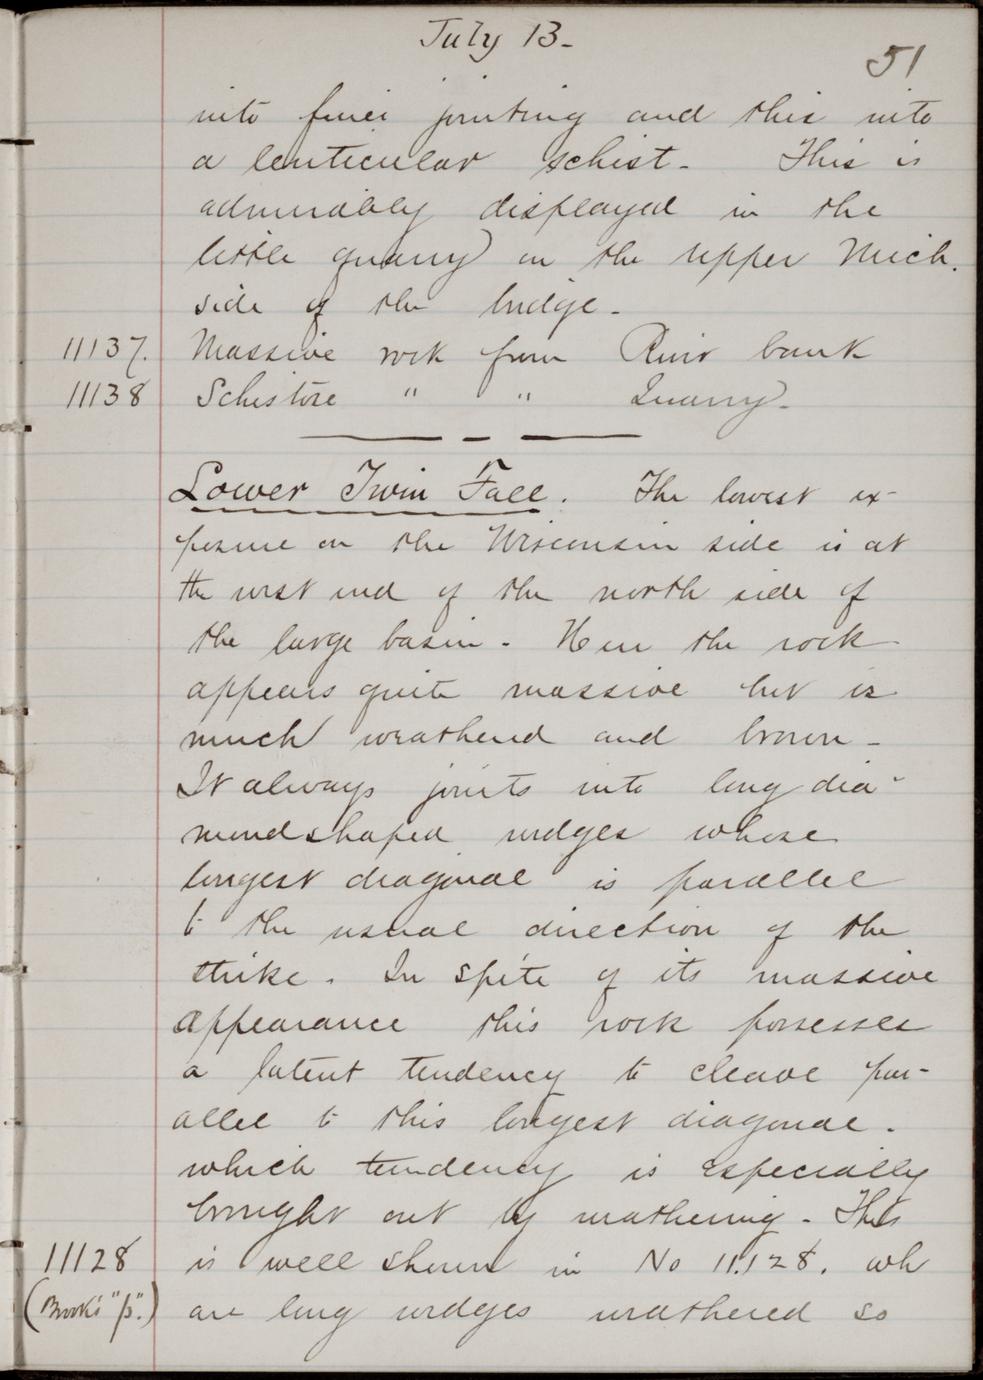 July 13-
51
into finer jointing and this into
a lenticular schist- This is
admirably displayed in the
little quarry on the upper Mich.
side of the bridge-
11137. Massive rock from River bank
11138 Schistose " " Quarry-
Lower Twin Fall. The lowest ex-
posure on the Wisconsin side is at
the west end of the north side of
the large basin- Here the rock
appears quite massive but is
much weathered and brown-
It always joints into long dia-
mond shaped wedges whose
longest diagonal is parallel
to the usual direction of the
strike. In spite of its massive
appearance this rock possesses
a latent tendency to cleave par-
allel to this longest diagonal.
which tendency is especially
brought out by weathering- This
11128 is well shown in No 11.128. wh
(Brooks "β".) are long wedges weathered so